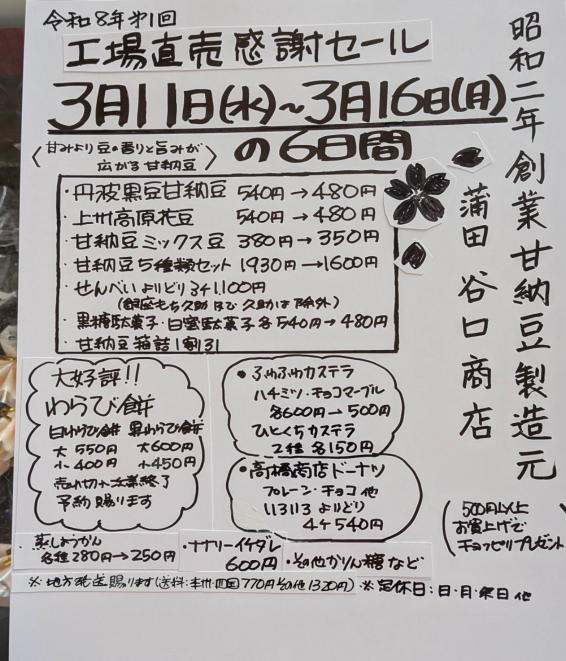 令和8年第1回
工場直売感謝セール
3月11日(水)~3月16日(月)
の6日間
〈甘みより豆の香りと旨みが
広がる甘納豆〉
昭和二年創業甘納豆製造元
蒲田 谷口商店
・丹波黒豆甘納豆 540円→480円
・上州高原花豆 540円→480円
・甘納豆ミックス豆 380円→350円
・甘納豆5種類セット 1930円→1600円
・せんべいよりどり3ヶ1,100円
(銀座もち久助 及び 久助は除外)
・黒糖駄菓子・白蜜駄菓子各540円→480円
・甘納豆箱詰1割引
大好評!!
わらび餅
白わらび餅 黒わらび餅
大 550円 大600円
小 400円 小450円
売り切れ次第終了
予約賜ります
・ふわふわカステラ
ハチミツ・チョコマーブル
各600円→500円
ひとくちカステラ
2種 各150円
・高橋商店ドーナツ
プレーン・チョコ他
いろいろよりどり
4ヶ540円
500円以上
お買上げで
チョッピリプレゼント
・蒸しようかん
各種280円→250円
・ナナリーイケダレ
600円
・その他かりん糖など
※地方発送賜ります(送料:本州・四国770円その他1320円)
※定休日:日・月・祭日他